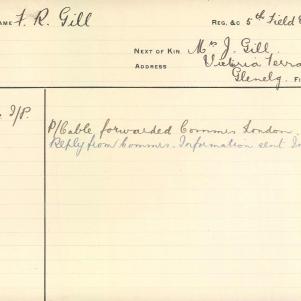 NAME F. R. Gill REG. &C 5th Field
NEXT OF KIN Mrs J. Gill
ADDRESS Victoria Terra
Glenelg.
I/P. P/Cable forwarded Commrs London
Reply from Commrs. Information sent